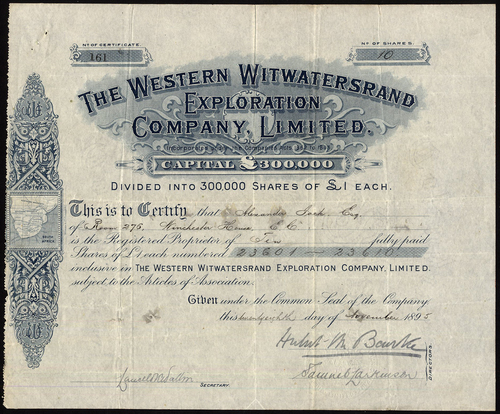 No OF CERTIFICATE
161
No OF SHARES.
10
THE WESTERN WITWATERSRAND
EXPLORATION
COMPANY, LIMITED.
Incorporated under the Companies Acts, 1862 to 1893.
CAPITAL £300,000
DIVIDED INTO 300,000 SHARES OF £1 EACH.
This is to Certify that Alexander Esq.
of Room 276, Winchester House E.C.
is the Registered Proprietor of Ten fully paid
Shares of £1 each numbered 23601 — 23610
inclusive in THE WESTERN WITWATERSRAND EXPLORATION COMPANY, LIMITED.
subject to the Articles of Association.
Given under the Common Seal of the Company
this twenty eighth day of November 1895
SOUTH AFRICA
Hubert M Bourke
Samuel
DIRECTORS.
SECRETARY.